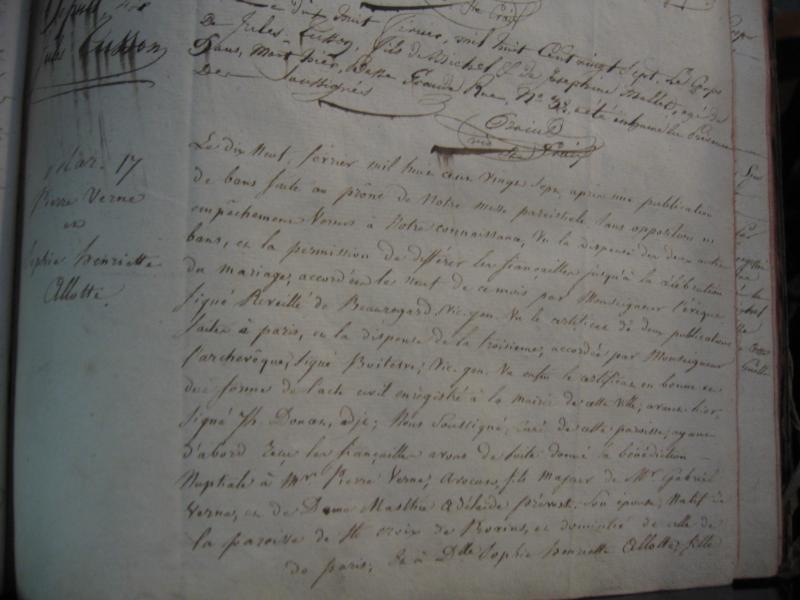 Jules Tusson
dix huit février, mil huit cent vingt sept, le corps
De Jules Tusson, fils de Michel & de Josephine Mallet, agé de
Deux Grande Rue, No 32, a été inhumé en présence
Des soussignés
Mar. 17
Pierre Verne
et
Sophie henriette
Allotte.
Le dix Neuf, février mil huit cent vingt sept, après une publication
de bans faite au prône de Notre messe paroissiale sans opposition ni
empêchement venus à Notre connaissance, Vu la dispense des deux autres
bans, et la permission de différer les fiançailles jusqu'à la célébration
du mariage, accordées le neuf de ce mois par Monseigneur l'évêque
signé Reveillé de Beauregard, Vic. gen. Vu le certificat de deux publications
faites à paris, et la dispense de la troisieme, accordée par Monseigneur
l'archevêque, signé Boileve, Vic. gen. Vu enfin le certificat en bonne et
due forme de l'acte civil enregistré à la mairie de cette ville, avant hier,
signé adj; Nous soussigné, curé de cette paroisse, ayant
d'abord reçu les fiançailles avons de suite donné la bénédiction
Nuptiale à Mr Pierre Verne, Avocat, fils majeur de Mr Gabriel
Verne, et de Dame Marthe Adélaide Prévost, son épouse, Natif de
la paroisse de Ste croix de Provins, et domicilié de celle de
de paris; & à Dlle Sophie henriette Allotte, fille